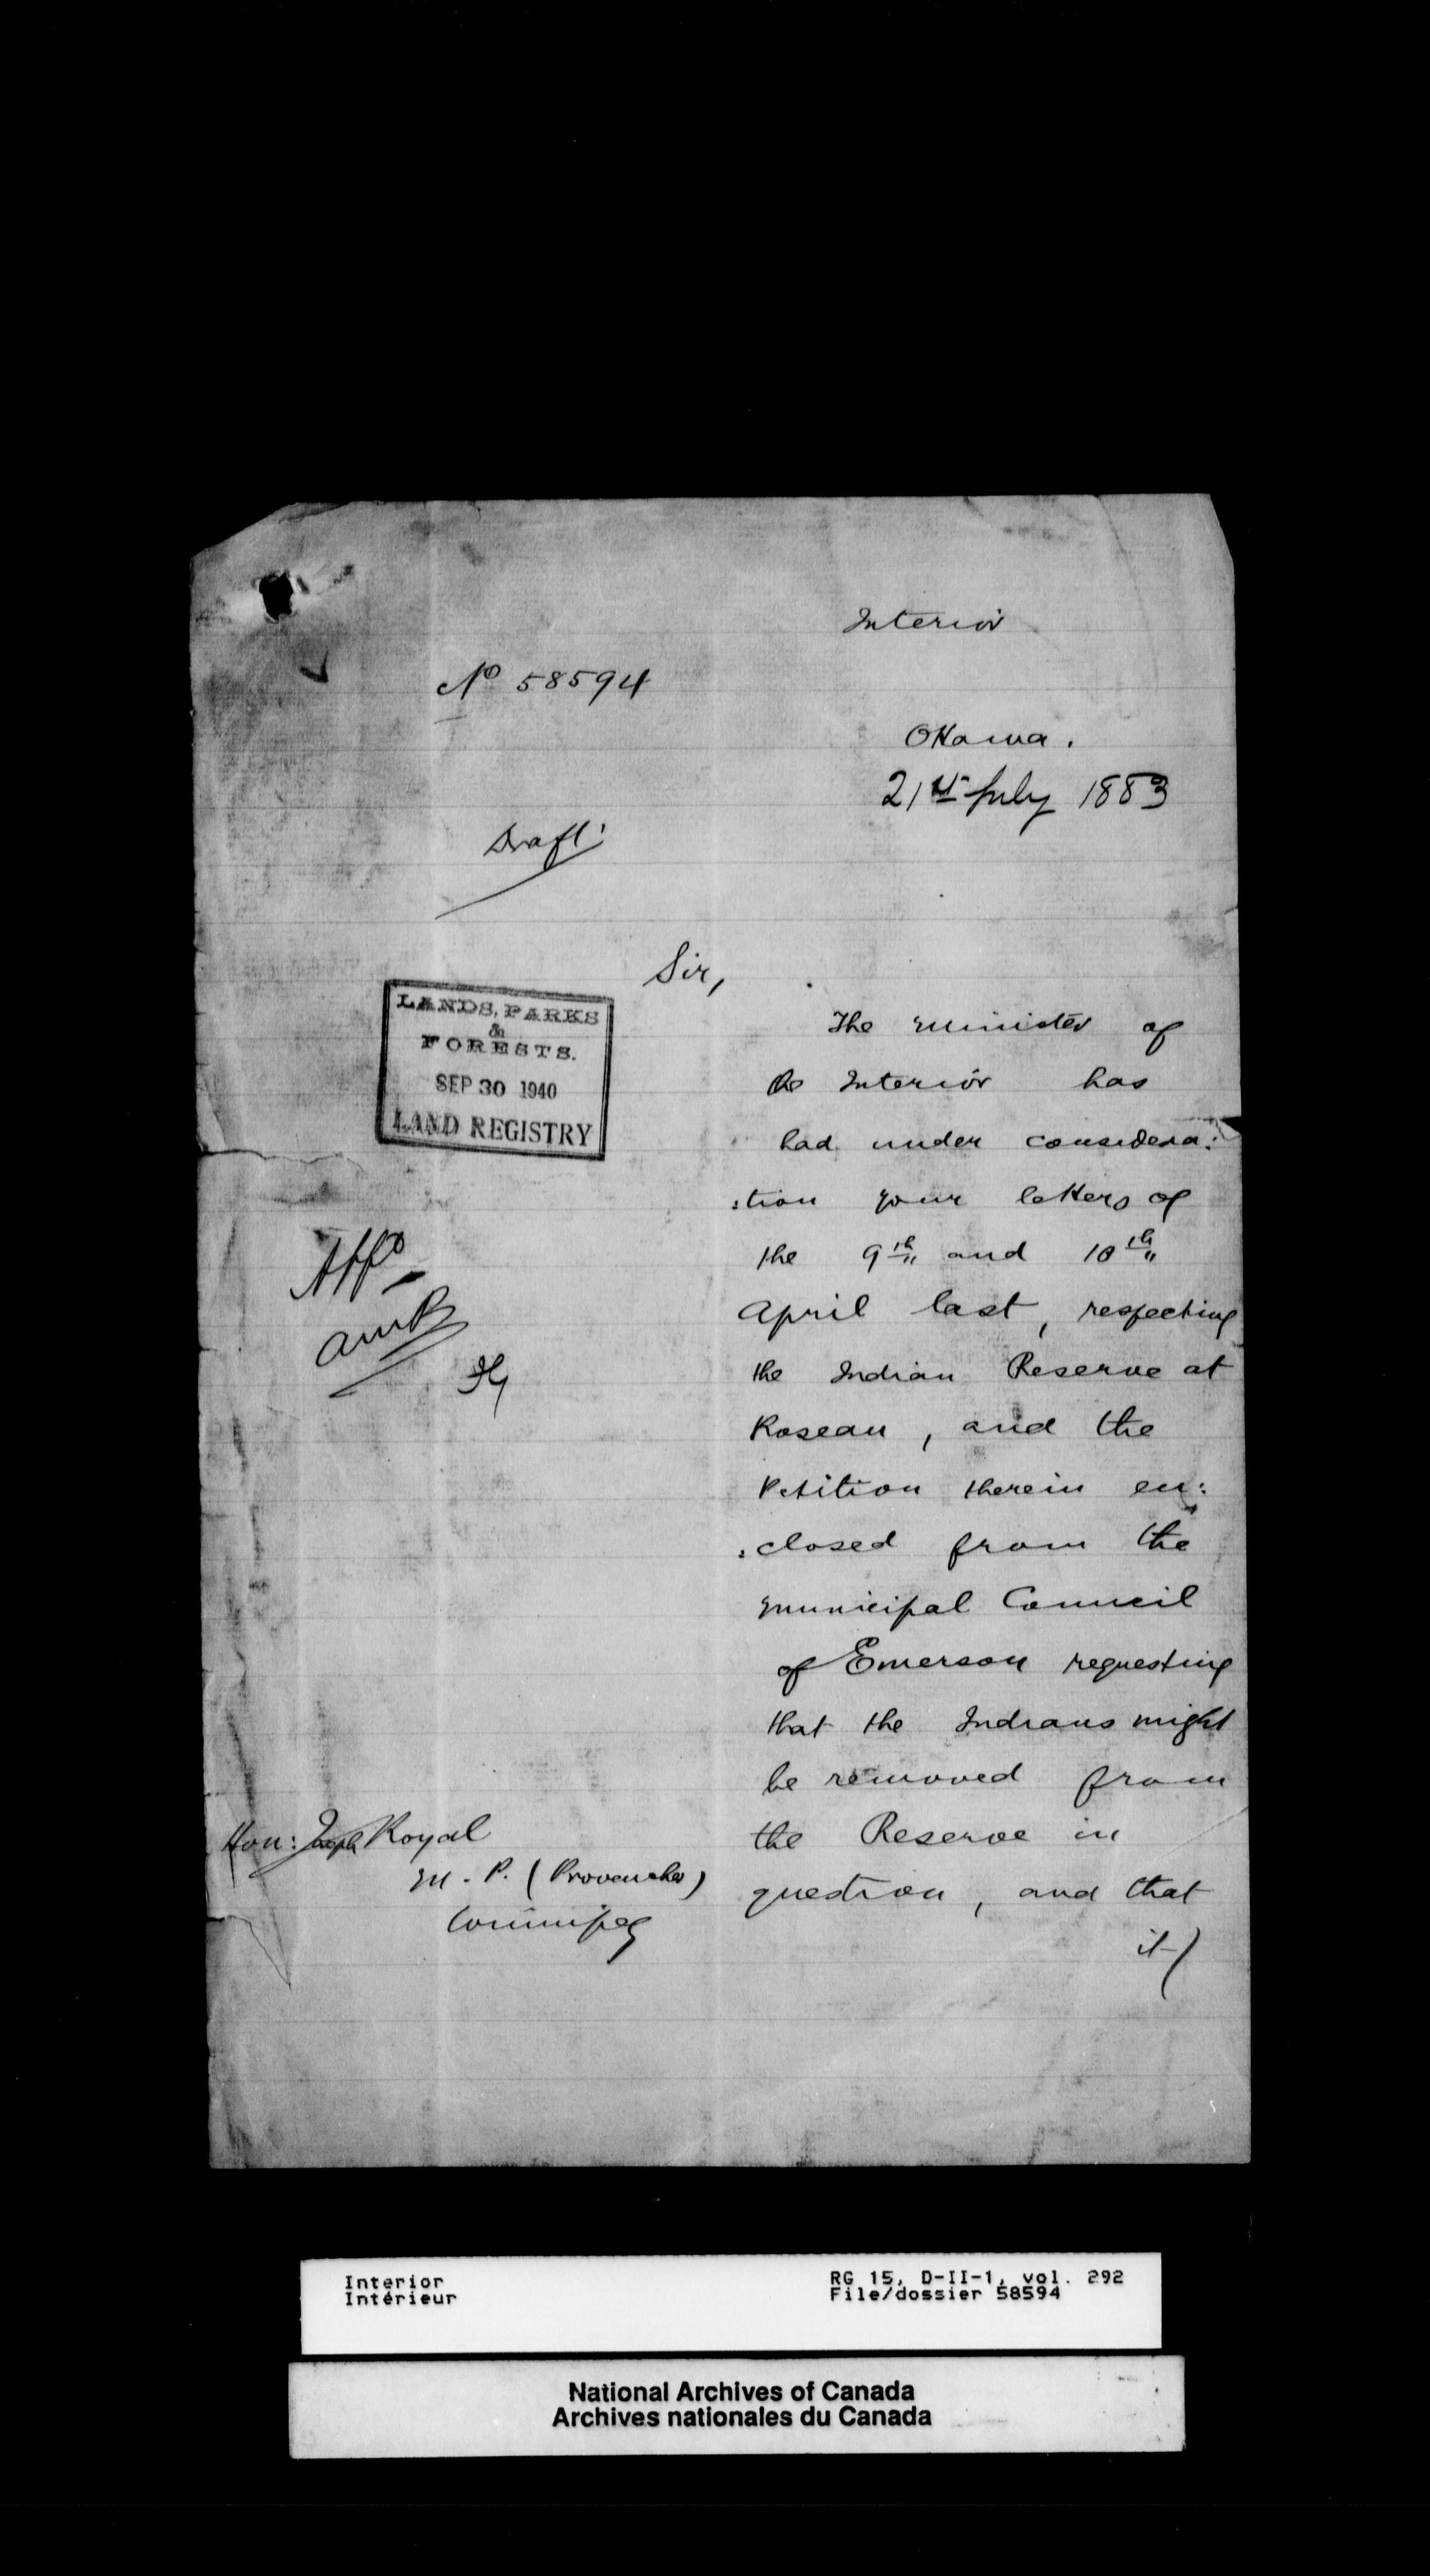 Interior
No 58594
Ottawa.
21st July 1883
Draft
Sir,
LANDS, PARKS
&
FORESTS.
SEP 30 1940
LAND REGISTRY
The Minister of
the Interior has
had under considera:
:tion your letters of
the 9th and 10th
April last, respecting
the Indian Reserve at
Roseau, and the
Petition therein en:
:closed from the
Municipal Council
of Emerson requesting
that the Indians might
be removed from
the Reserve in
question, and that
it)
AMB
Hon: Joseph Royal
M.P. (Provencher)
Winnipeg
Interior
Intérieur
RG 15, D-II-1, vol. 292
File/dossier 58594
National Archives of Canada
Archives nationales du Canada